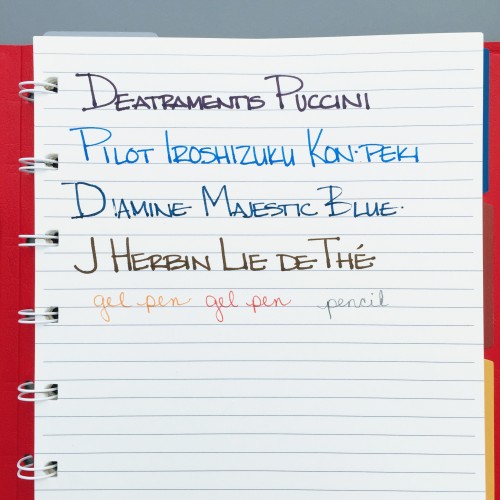 DeAtramentis Puccini
Pilot Iroshizuku Kon-peki
Diamine Majestic Blue.
J Herbin Lie de Thé
gel pen gel pen pencil